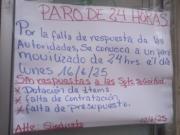 PARO DE 24 HORAS
Por la falta de respuesta de las
Autoridades, Se convoca a un paro
movilizado de 24 hrs. el día
Lunes 16/6/25
Sin respuestas a las
* Dotación de Items
* Falta de Contratación
* falta de presupuesto.